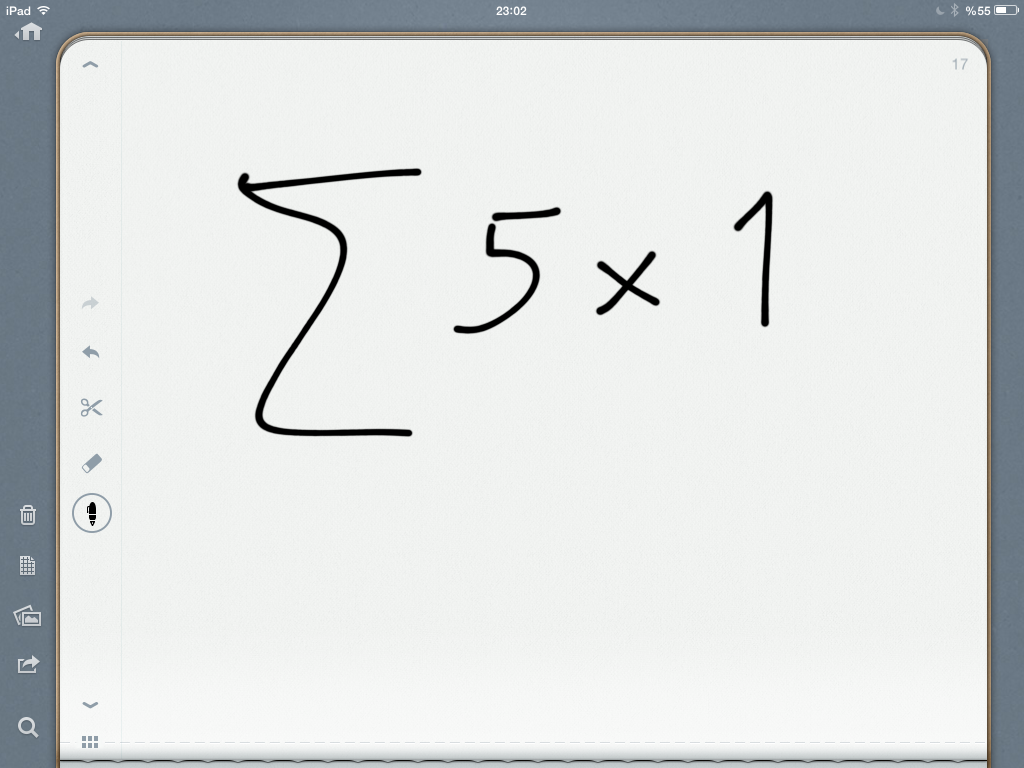 iPad 23:02 %55
17
∑ 5 x 1